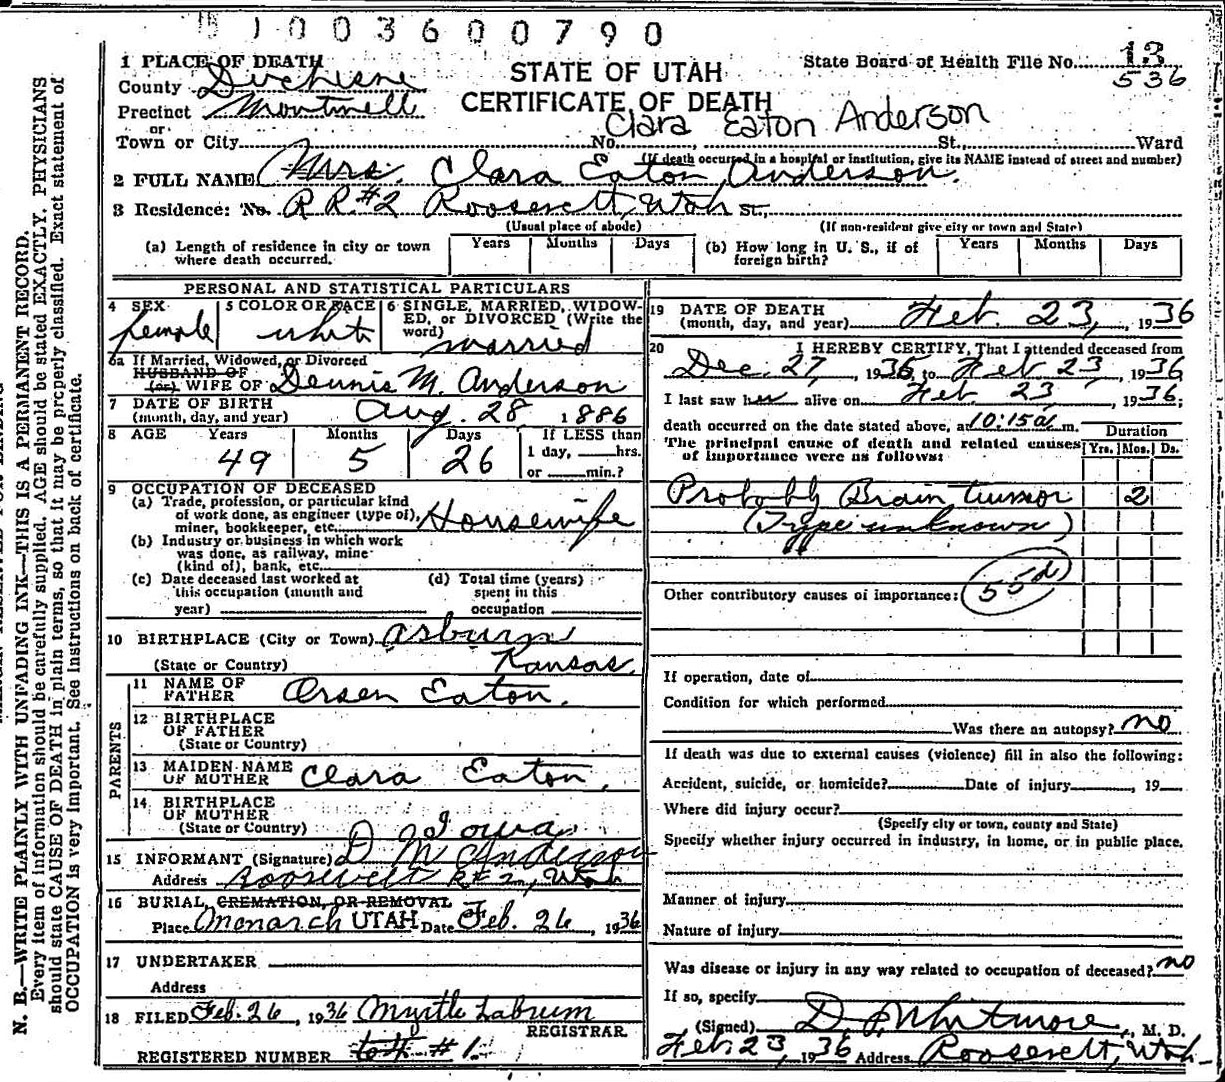 1003600790
1 PLACE OF DEATH
STATE OF UTAH
CERTIFICATE OF DEATH
State Board of Health File No. 13
536
County Duchesne
Precinct Montwell
or
Clara Eaton Anderson
Town or City No. , St., Ward
(If death occurred in a hospital or institution, give its NAME instead of street and number)
2 FULL NAME Mrs. Clara Eaton Anderson.
3 Residence: No. R R. #2 Roosevelt, Utah St.,
(Usual place of abode) (If non-resident give city or town and State)
(a) Length of residence in city or town where death occurred. Years Months Days (b) How long in U. S., if of foreign birth? Years Months Days
PERSONAL AND STATISTICAL PARTICULARS
4 SEX female
5 COLOR OR RACE white
6 SINGLE, MARRIED, WIDOW-
ED, or DIVORCED (Write the
word) married
6a If Married, Widowed, or Divorced
HUSBAND OF
(or) WIFE OF Dennis M. Anderson
7 DATE OF BIRTH
(month, day, and year) Aug. 28, 1886
8 AGE Years Months Days If LESS than
49 5 26 1 day, hrs.
or min.?
9 OCCUPATION OF DECEASED
(a) Trade, profession, or particular kind
of work done, as engineer (type of),
miner, bookkeeper, etc. Housewife
(b) Industry or business in which work
was done, as railway, mine
(kind of), bank, etc.
(c) Date deceased last worked at
this occupation (month and
year)
(d) Total time (years)
spent in this
occupation
10 BIRTHPLACE (City or Town) Asburn
(State or Country) Kansas
PARENTS
11 NAME OF
FATHER Orsen Eaton.
12 BIRTHPLACE
OF FATHER
(State or Country)
13 MAIDEN NAME
OF MOTHER Clara Eaton,
14 BIRTHPLACE
OF MOTHER
(State or Country) Iowa
15 INFORMANT (Signature) D M Anderson
Address Roosevelt , Utah
16 BURIAL, CREMATION, OR REMOVAL
Place Monarch UTAH Date Feb. 26, 1936
17 UNDERTAKER
Address
18 FILED Feb. 26, 1936 Myrtle Labrum
REGISTRAR.
REGISTERED NUMBER # 1.
19 DATE OF DEATH
(month, day, and year) Feb. 23, 1936
20 I HEREBY CERTIFY, That I attended deceased from
Dec. 27, 1935, to Feb 23, 1936
I last saw her alive on Feb. 23, 1936;
death occurred on the date stated above, at 10:15a m.
Duration
The principal cause of death and related causes
of importance were as follows: Yrs. Mos. Ds.
Probably Brain tumor 2
(Type unknown)
Other contributory causes of importance: 55d
If operation, date of
Condition for which performed
Was there an autopsy? no
If death was due to external causes (violence) fill in also the following:
Accident, suicide, or homicide? Date of injury , 19
Where did injury occur?
(Specify city or town, county and State)
Specify whether injury occurred in industry, in home, or in public place.
Manner of injury
Nature of injury
Was disease or injury in any way related to occupation of deceased? no
If so, specify
(Signed) Whitmore, M. D.
Feb 23, 1936 Address Roosevelt, Utah
N. B.—WRITE PLAINLY WITH UNFADING INK—THIS IS A PERMANENT RECORD.
Every item of information should be carefully supplied. AGE should be stated EXACTLY. PHYSICIANS
should state CAUSE OF DEATH in plain terms, so that it may be properly classified. Exact statement of
OCCUPATION is very important. See instructions on back of certificate.